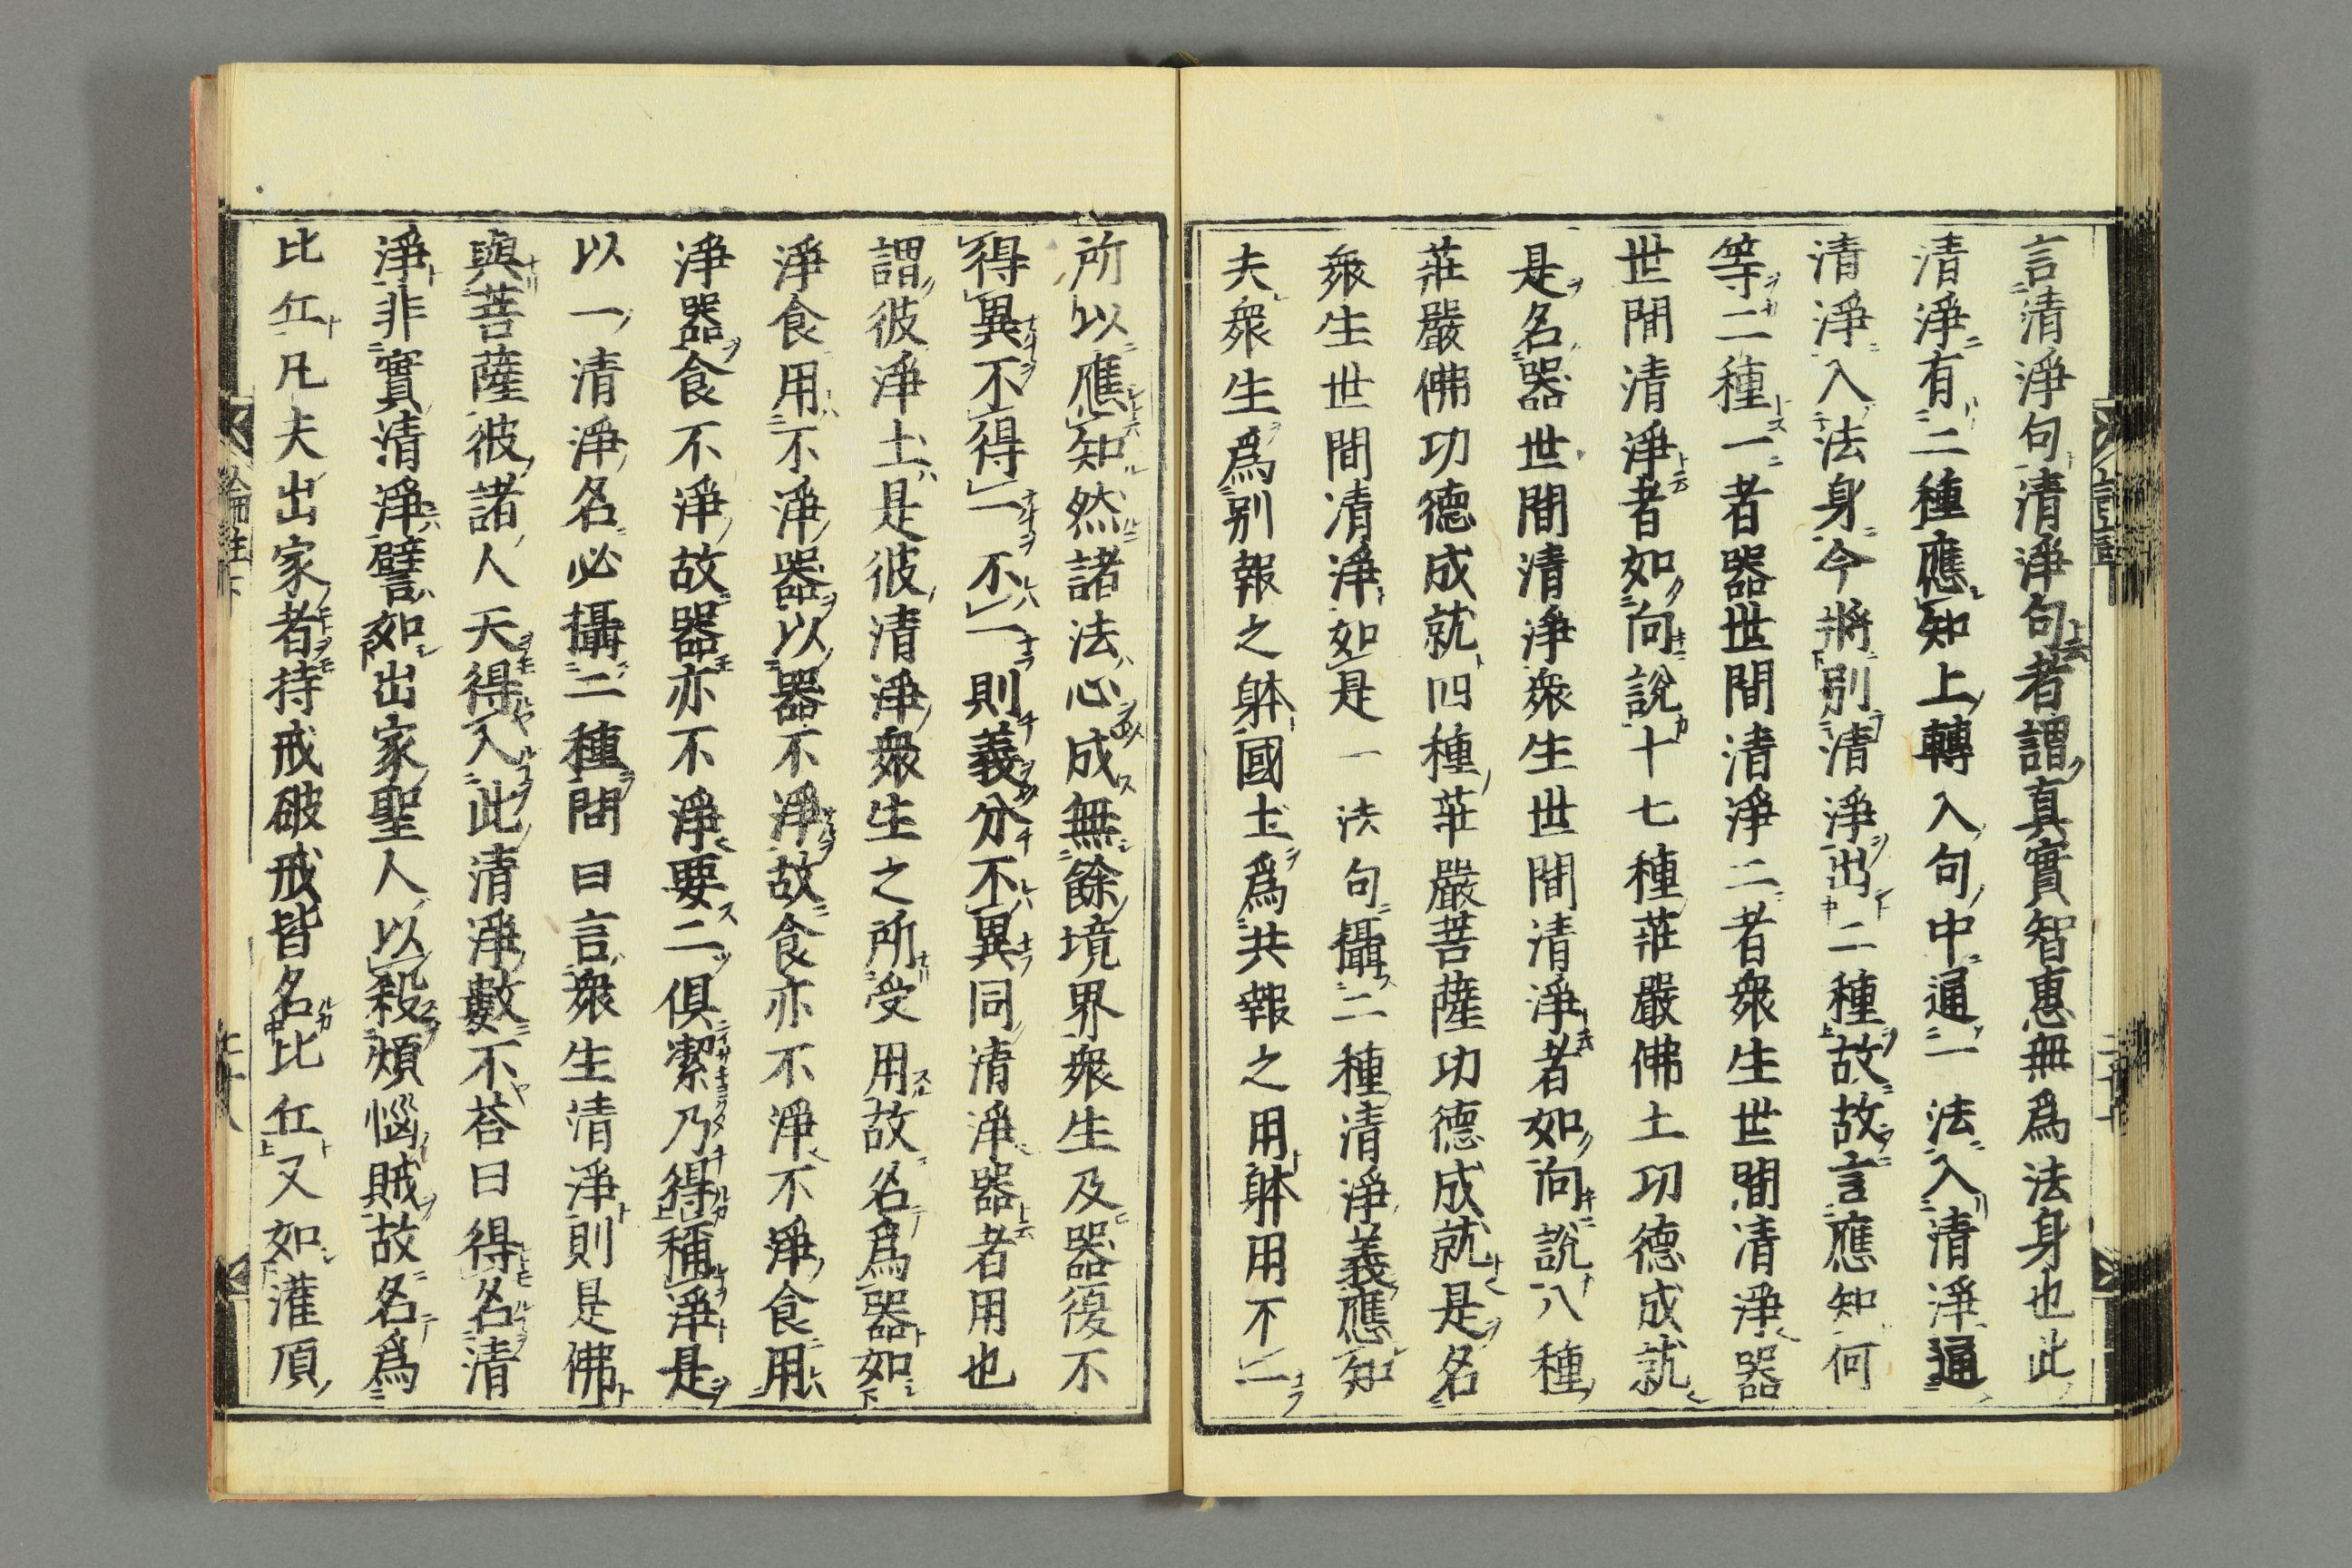 言清淨句清淨句者謂真實智惠無爲法身也此
清淨有二種應知上轉入句中通一法入清淨通
清淨入法身今將別清淨出二種故故言應知何
等二種一者器世間清淨二者衆生世間清淨器
世間清淨者如向說十七種莊嚴佛土功德成就
是名器世間清淨衆生世間清淨者如向說八種
莊嚴佛功德成就四種莊嚴菩薩功德成就是名
衆生世間清淨如是一法句攝二種清淨義應知
夫衆生爲别報之躰國土爲共報之用躰用不一
所以應知然諸法心成無餘境界衆生及器復不
得異不得一不一則義分不異同清淨器者用也
謂彼淨土是彼清淨衆生之所受用故名爲器如
淨食用不淨器以器不淨故食亦不淨不淨食用
淨器食不淨故器亦不淨要二俱潔乃得稱淨是
以一清淨名必攝二種問曰言衆生清淨則是佛
與菩薩彼諸人天得入此清淨數不荅曰得名清
淨非實清淨譬如出家聖人以殺煩惱賊故名爲
比丘凡夫出家者持戒破戒皆名比丘又如灌頂